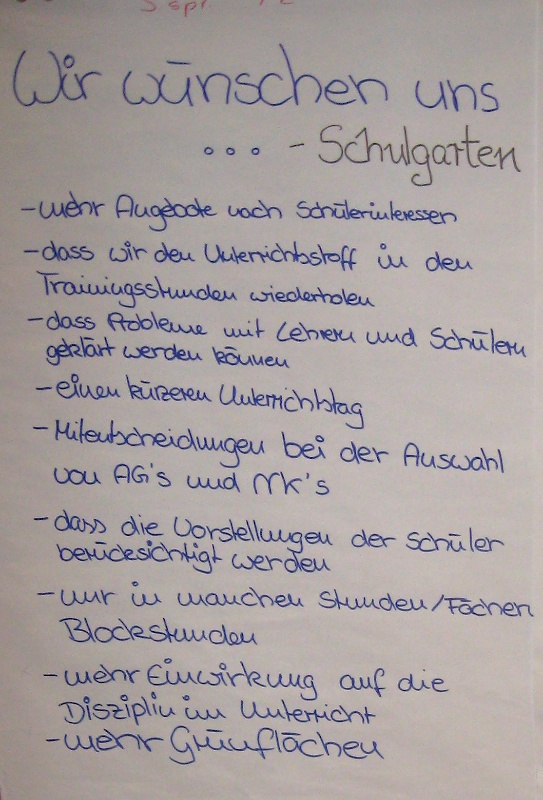 Wir wünschen uns
... - Schulgarten
- mehr Angebote nach Schülerinteressen
- dass wir den Unterrichtsstoff in den
Trainingsstunden wiederholen
- dass Probleme mit Lehrern und Schülern
geklärt werden können
- einen kürzeren Unterrichtstag
- Mitentscheidungen bei der Auswahl
von AG's und NK's
- dass die Vorstellungen der Schüler
berücksichtigt werden
- nur in manchen Stunden/Fächern
Blockstunden
- mehr Einwirkung auf die
Disziplin im Unterricht
- mehr Grünflächen